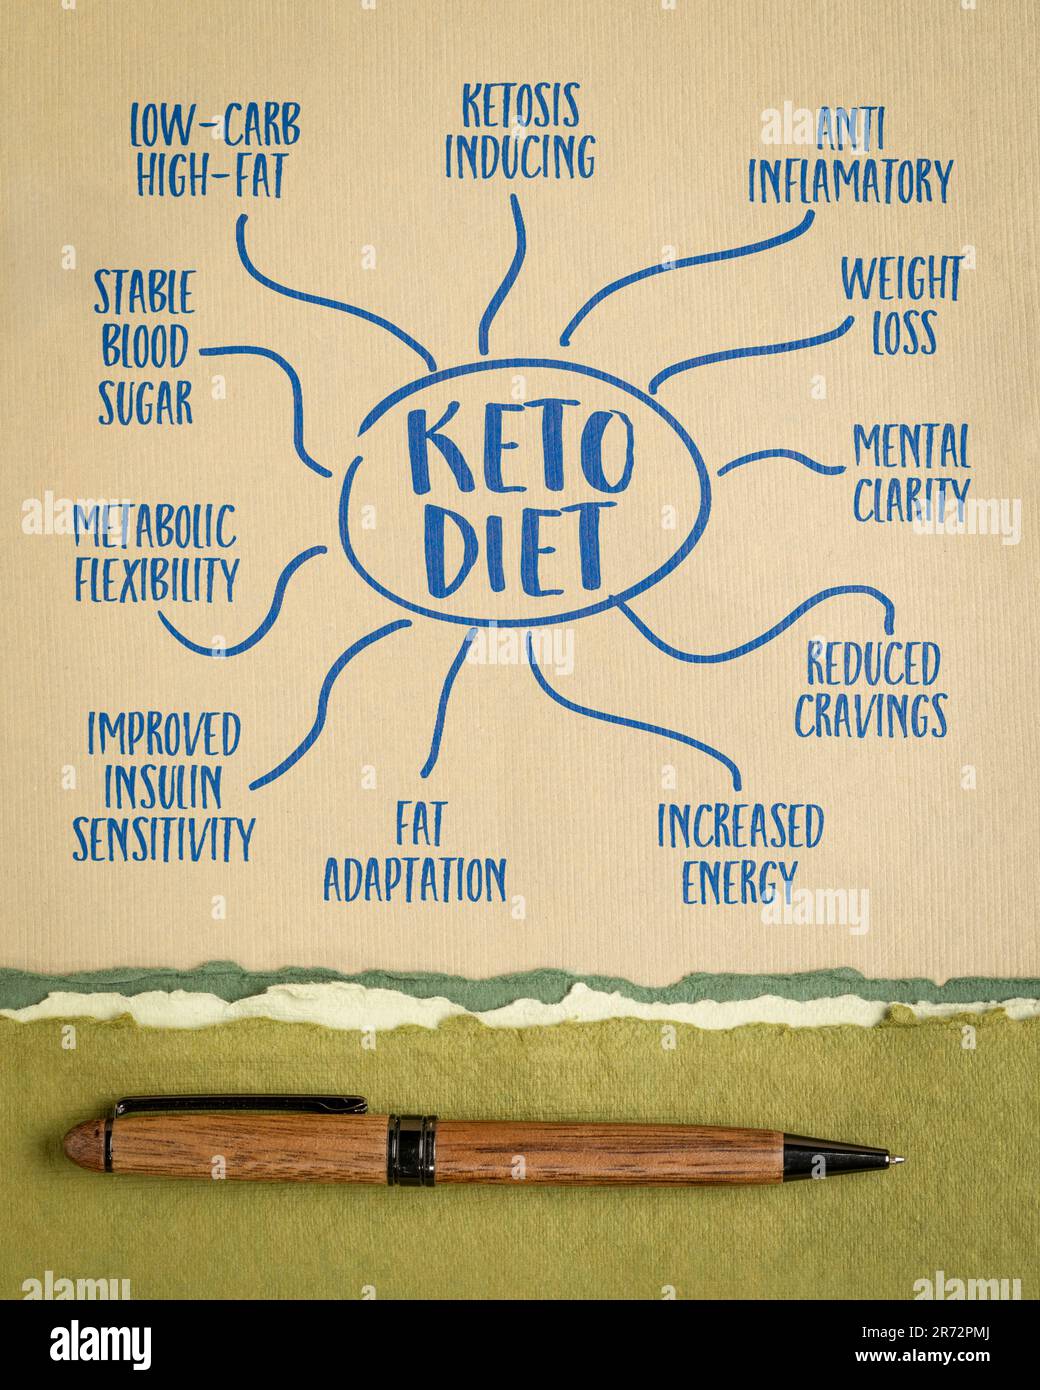 LOW-CARB
HIGH-FAT
KETOSIS
INDUCING
ANTI
INFLAMATORY
STABLE
BLOOD
SUGAR
WEIGHT
LOSS
KETO
DIET
MENTAL
CLARITY
METABOLIC
FLEXIBILITY
REDUCED
CRAVINGS
IMPROVED
INSULIN
SENSITIVITY
FAT
ADAPTATION
INCREASED
ENERGY
alamy
alamy
Image ID: 2R72PMJ
www.alamy.com